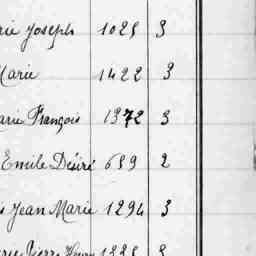 rie Joseph 1025 3
Marie 1422 3
arie François 1372 3
Emile Désiré 659 2
s Jean Marie 1294 3